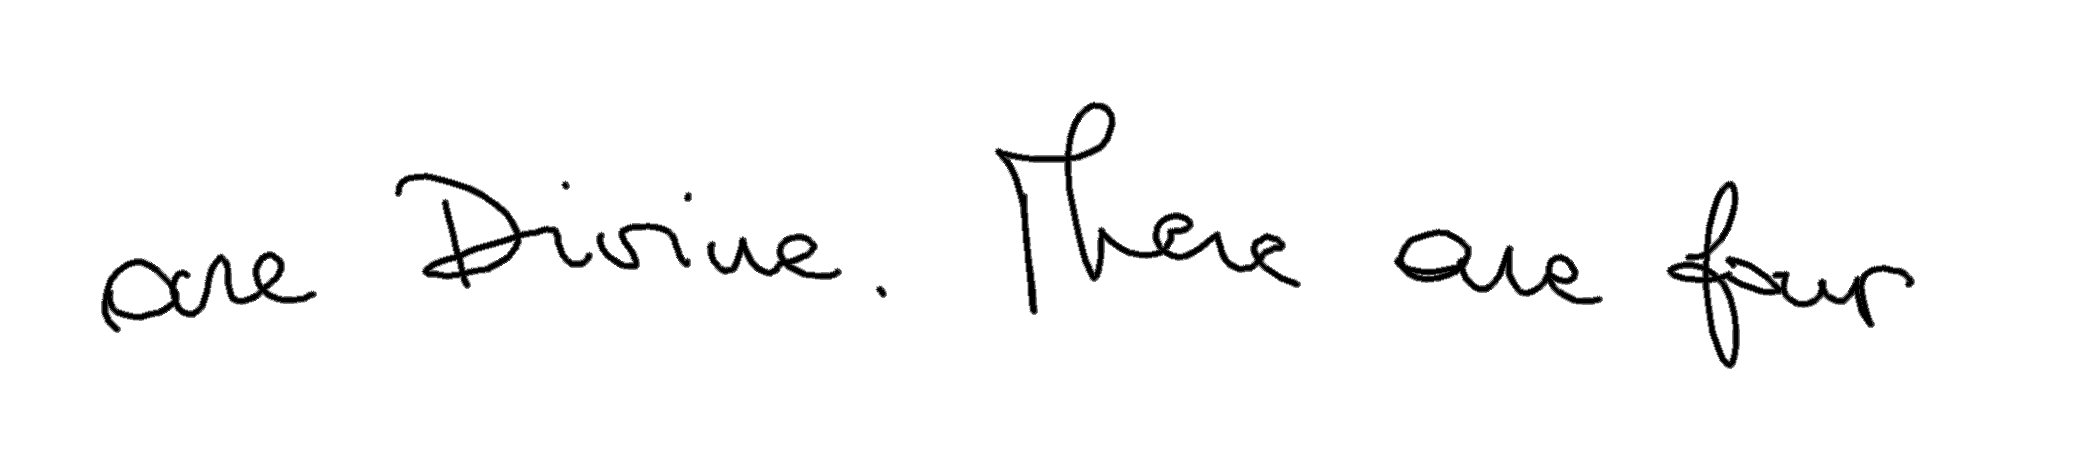 are Divine. There are four